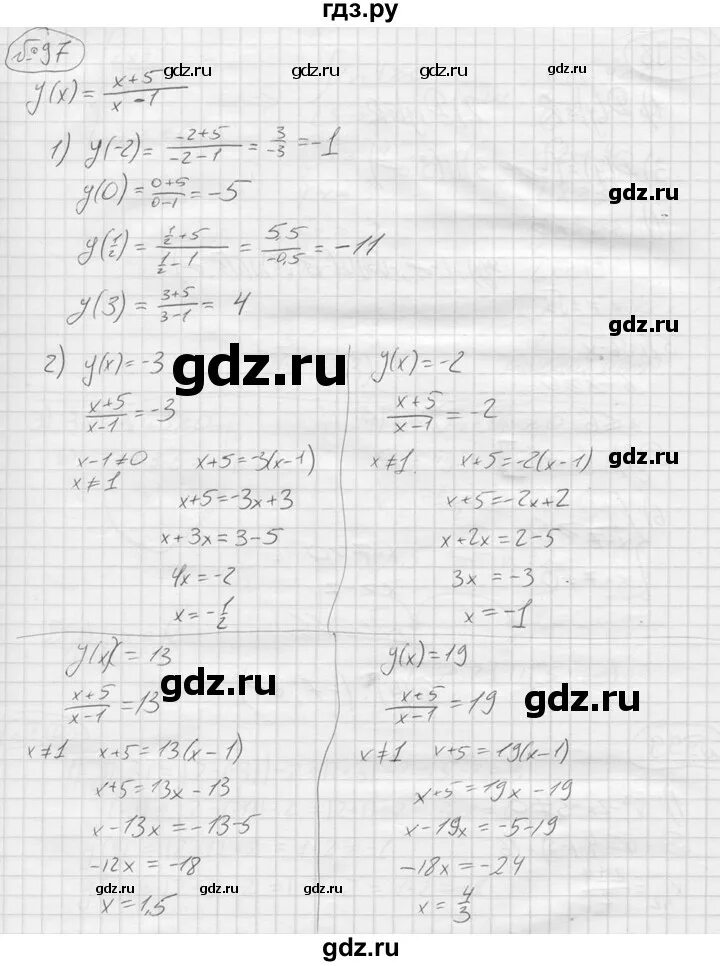 гдз.ру
№97
gdz.ru gdz.ru gdz.ru
y(x) = x+5 / x-1
1) y(-2) = -2+5 / -2-1 = 3 / -3 = -1
y(0) = 0+5 / 0-1 = -5
gdz.ru
y(1/2) = 1/2+5 / 1/2-1 = 5,5 / -0,5 = -11
y(3) = 3+5 / 3-1 = 4
gdz.ru
gdz.ru
2) y(x) = -3
x+5 / x-1 = -3
x-1≠0 x+5=-3(x-1)
x≠1
x+5=-3x+3
x+3x=3-5
4x=-2
x=-1/2
y(x)=-2
x+5 / x-1 = -2
x≠1. x+5=-2(x-1)
gdz.ru
x+5=-2x+2
x+2x=2-5
3x=-3
x=-1
y(x)=13
x+5 / x-1 = 13
gdz.ru
x≠1 x+5=13(x-1)
x+5=13x-13
x-13x=-13-5
-12x=-18
x=1,5
y(x)=19
x+5 / x-1 = 19
gdz.ru
x≠1 x+5=19(x-1)
x+5=19x-19
x-19x=-5-19
-18x=-24
x=4/3
gdz.ru gdz.ru gdz.ru
gdz.ru